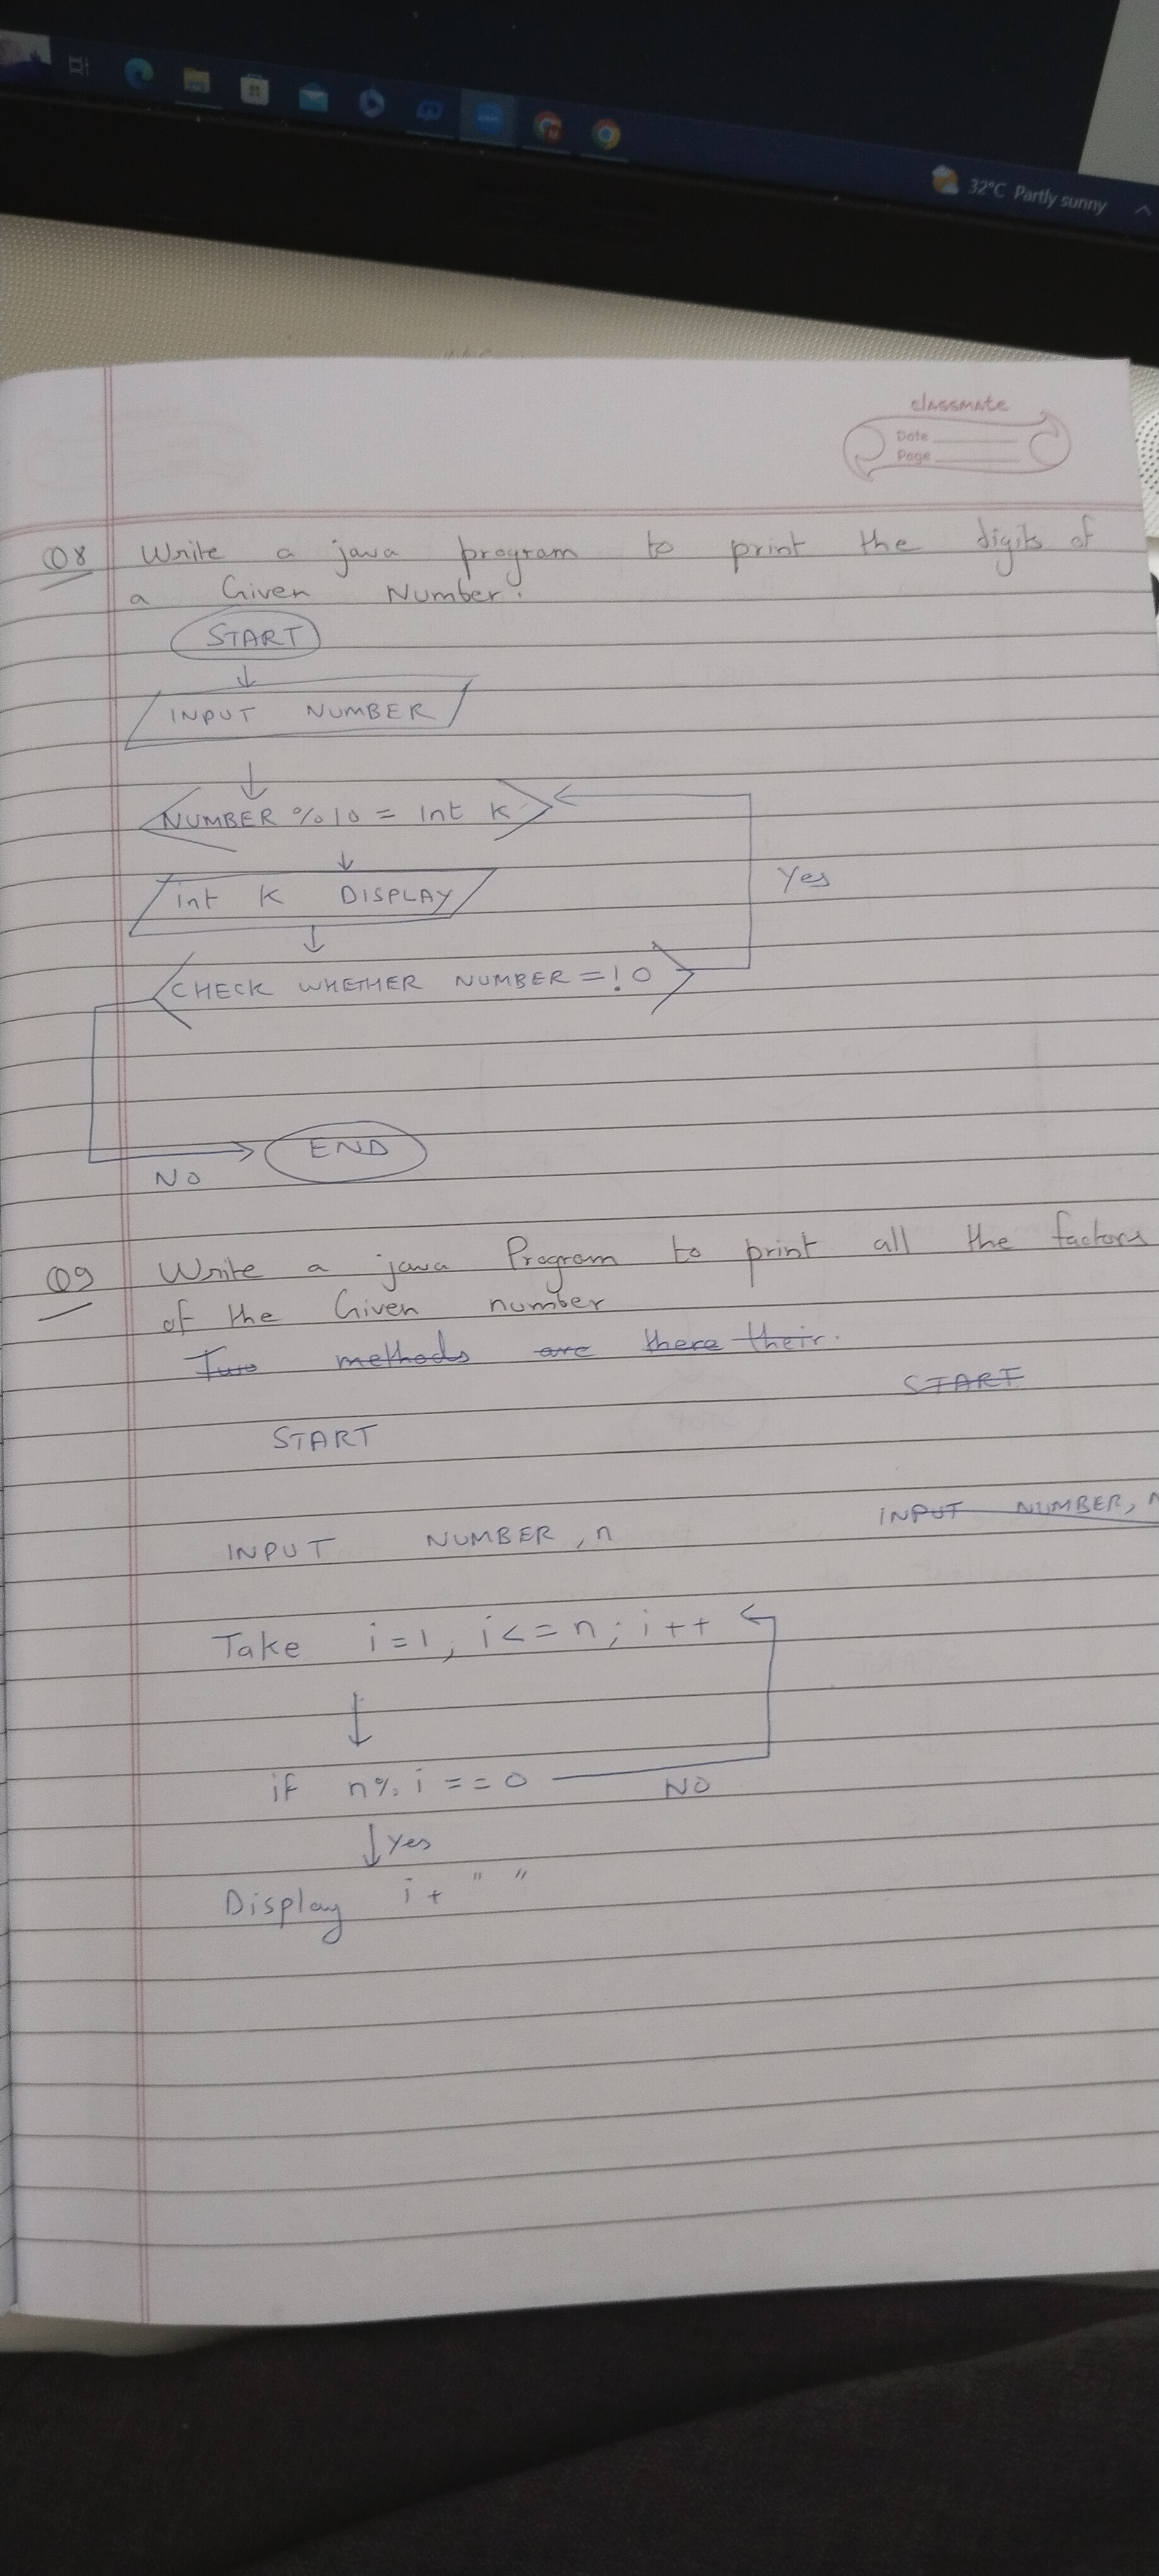 32°C Partly sunny
classmate
Date
Page
Q8 Write a java program to print the digits of
a Given Number.
START
INPUT NUMBER
NUMBER % 10 = Int K
Yes
int K DISPLAY
CHECK WHETHER NUMBER =! 0
END
NO
Q9 Write a java Program to print all the factors
of the Given number
Two methods are there their.
START
START
INPUT NUMBER,
INPUT NUMBER, n
Take i=1, i<=n; i++
if n% i ==0 NO
Yes
Display i+ " "